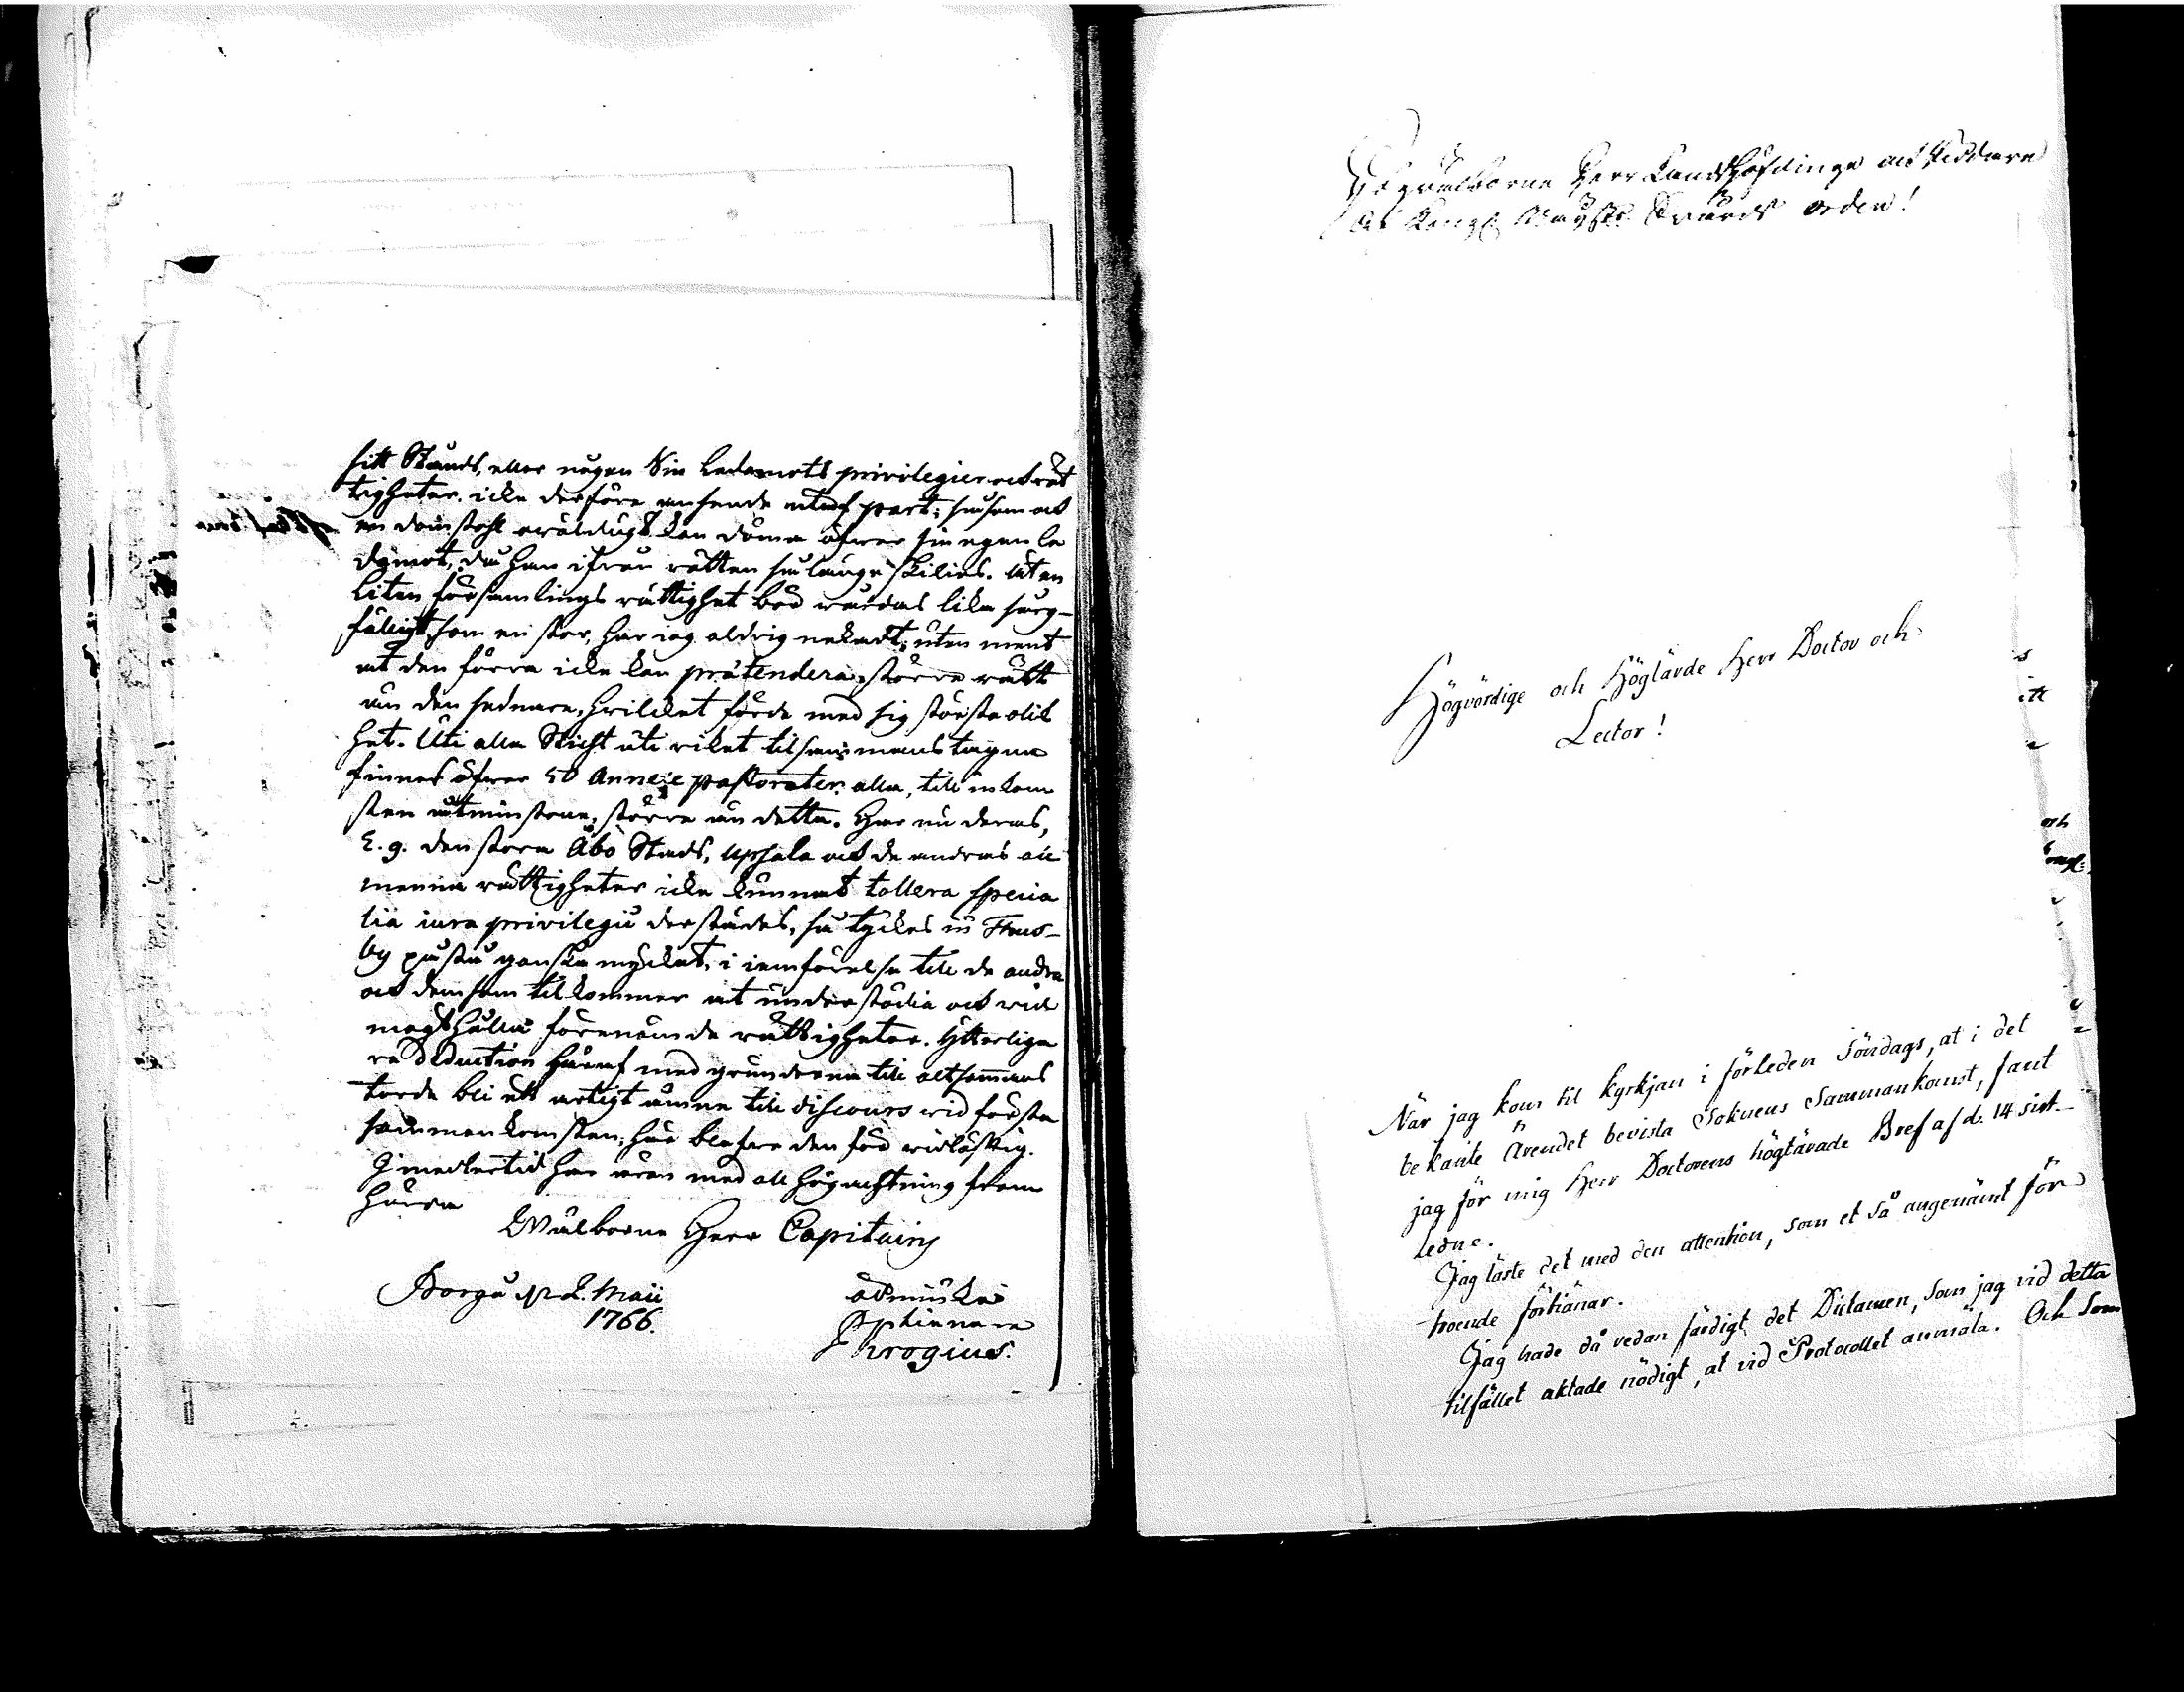 sitt Stånds, eller någon Sin Ledamots privilegier och rät
tigheter. icke derföre ansende utaf part; såsom ock
en domstohl oväldugt kan döma öfwer sin egen le
damot, då han ifrån rätten så länge skilies. At en
liten församlings rättighet bör wårdas lika sorg-
fälligt, som en stor, har iag aldrig nekadt; utan ment
at den förra icke kan prætendera större rätt
än den sednare, hvilcket förde med sig största olik
het. Uti alla Sticht uti riket tilsammans tagne
finnes öfwer 50 Annexe pastorater. alla, till inkom
sten åtminstone, större än detta. Har nu deras,
E. g. den stora Åbo Stads, Upsala och de andras all
männa rättigheter icke kunnat tollera specia
lia iura privilegii derstädes, så tyckes
by påstå ganska mycket, i iemförelse till de andra
och dem som tilkommer at understödia och wid
magt hålla förenämde rättigheter. Ytterliga
re Deduction häraf med grunderna till altsammans
torde bli ett artigt ämne till discours wid första
sammankomsten; här blefwe den för widlöftig.
Imedlertid har äran med all högachtning fram
härda
Wälborne Herr Capitains
Borgå d. 2. Maii
1766.
ödmiuke
tienare
Krogius.
Högwälborne Herr Landshöfdinge och Riddare
af Kongl. Maijts Swärds orden!
Högvördige och Höglärde Herr Doctor och
Lector!
När jag kom til kyrkjan i förleden Söndags, at i det
bekante Ärendet bevista Soknens Sammankomst, fant
jag för mig Herr Doctorens högtärade Bref af d. 14 sist-
ledne.
Jag läste det med den attention, som et så angenämt för
troende förtiänar.
Jag hade då redan färdigt det Dictamen, som jag vid detta
tilfället aktade nödigt, at vid Protocollet anmäla. Och som